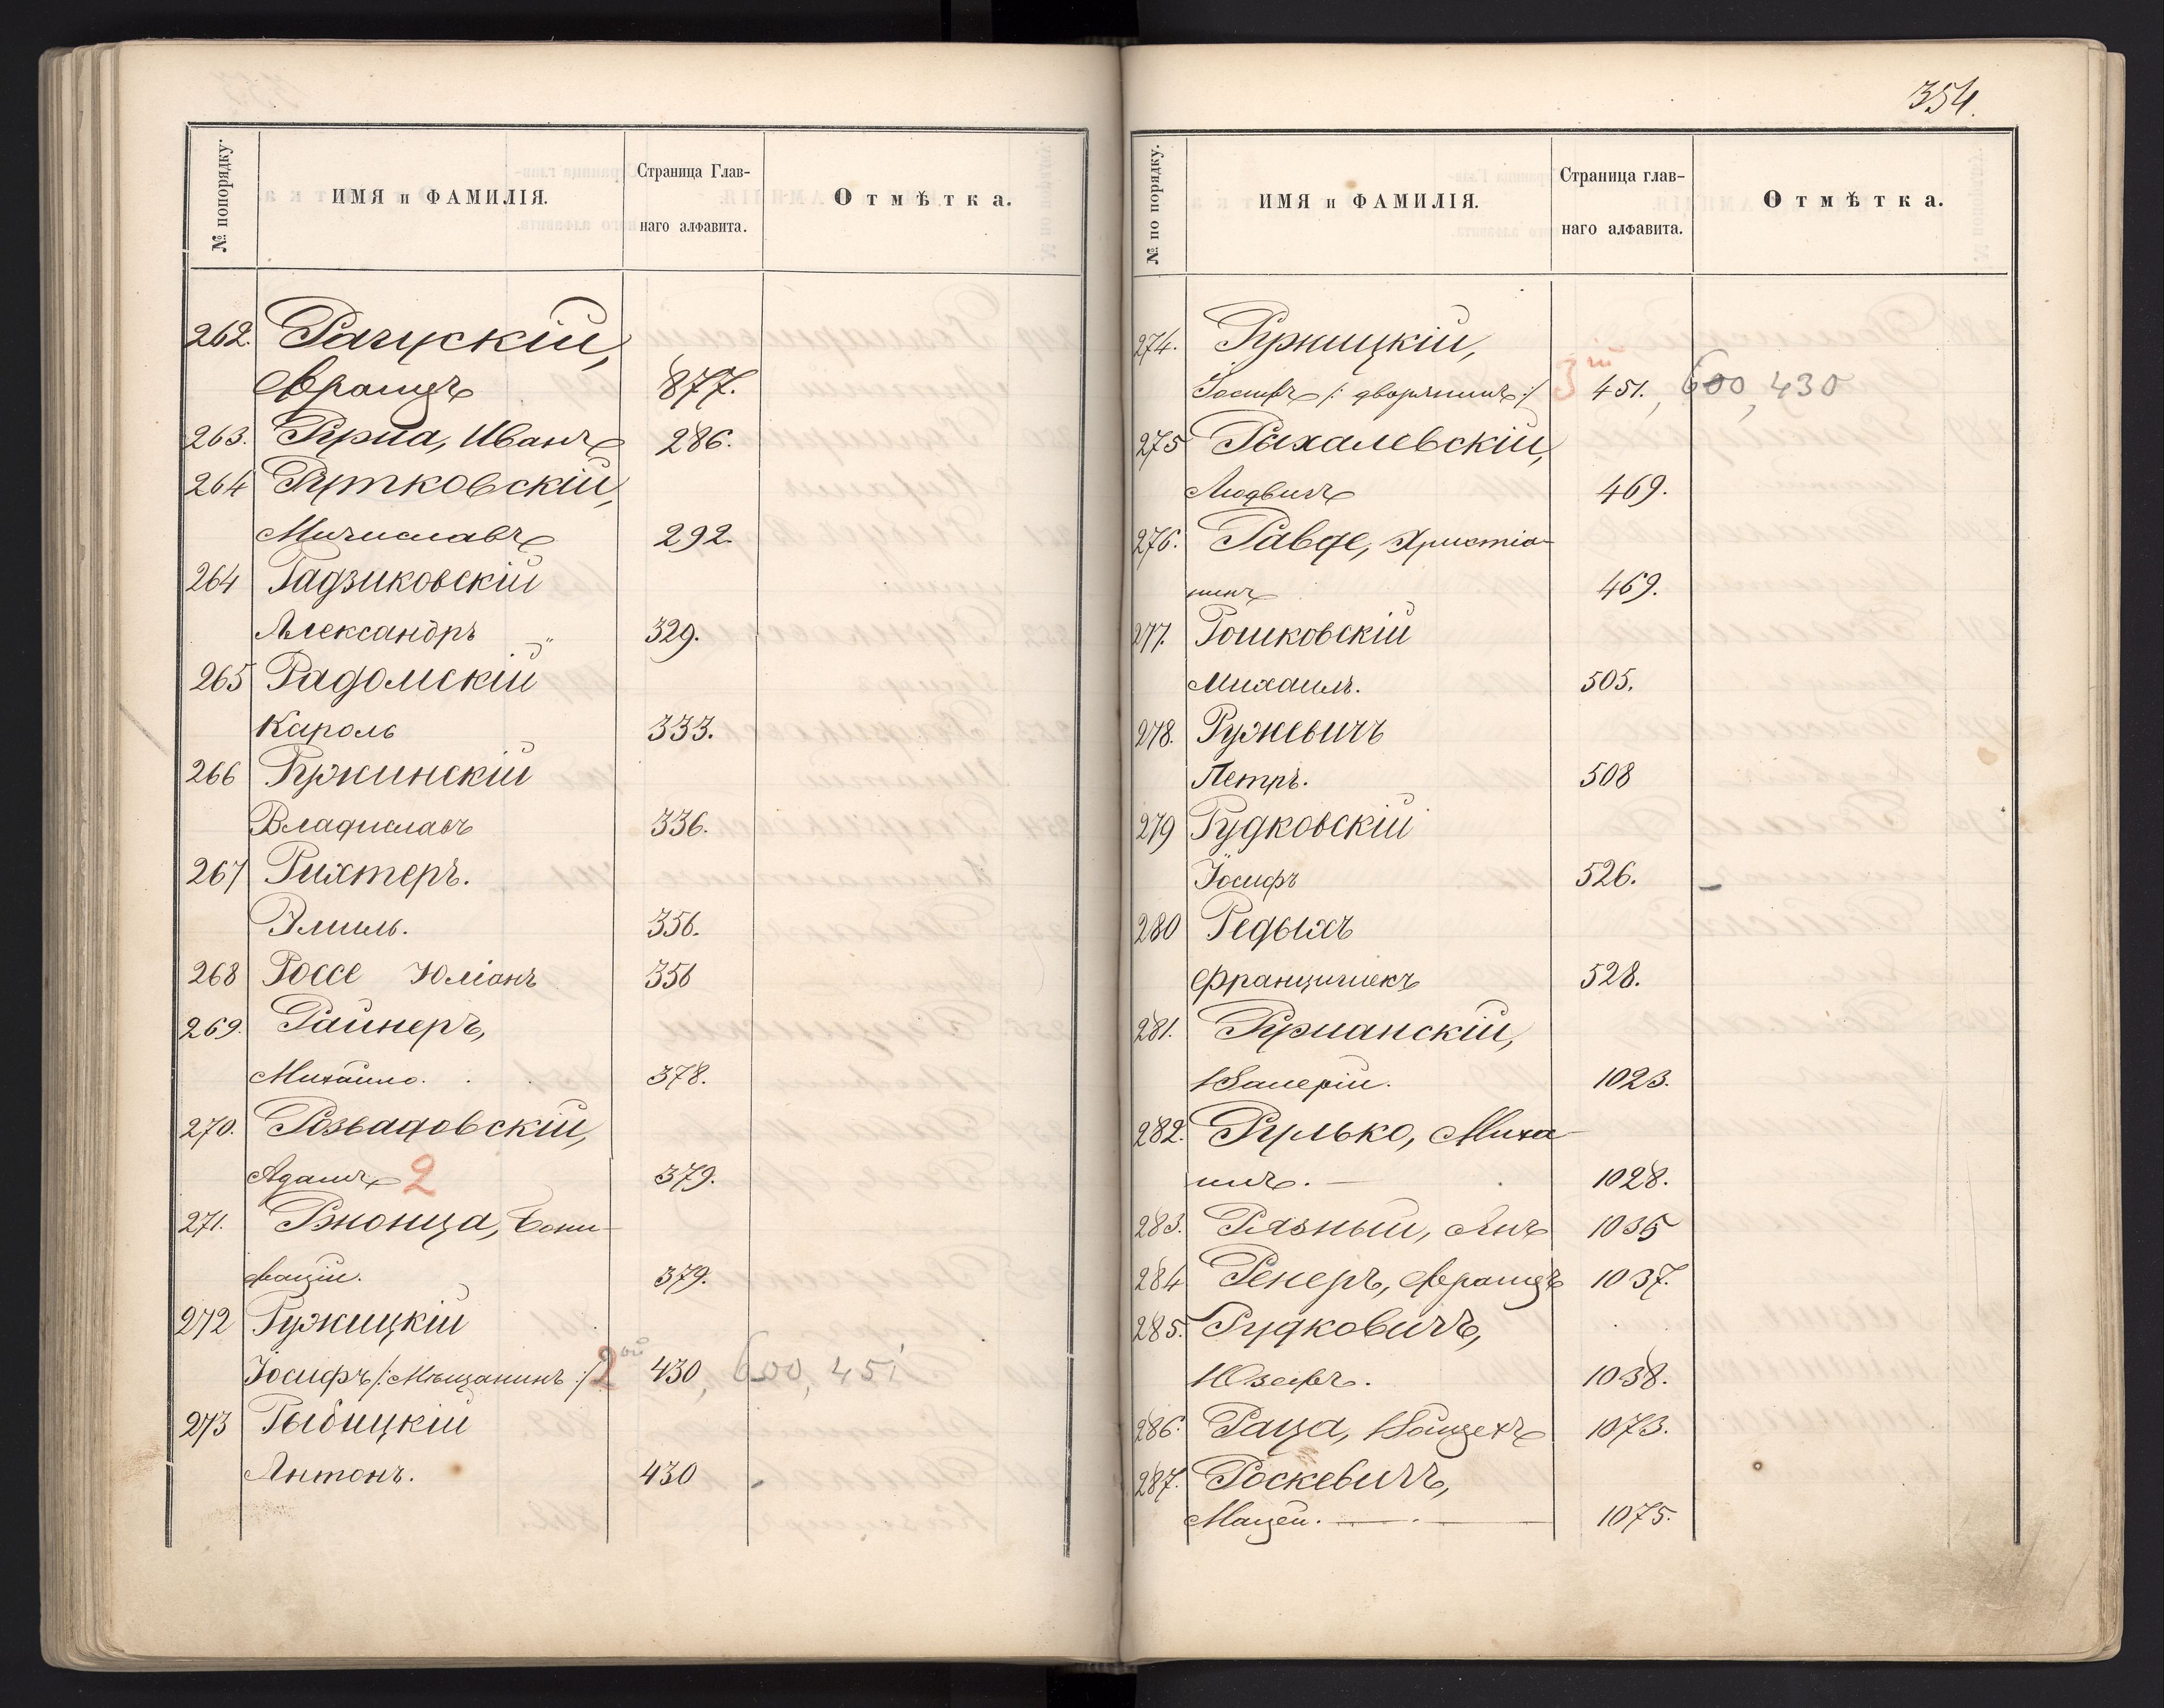 № попорядку.
ИМЯ и ФАМИЛІЯ.
Страница Глав-
наго алфавита.
Отмѣтка.
262. Рачускій,
Францъ 877.
263. Рура, Иванъ 286.
264 Рутковскій,
Мичиславъ 292.
264 Радзиковскій
Александръ „ 329.
265 Радомскій
Кароль 333.
266 Ружинскій
Владиславъ 336.
267 Рихтеръ.
Эмиль. 356.
268 Россе Юліанъ 356
269. Райнеръ,
Михайло. 378.
270. Розвадовскій,
Адамъ 2 379.
271. Ржонца, Бони-
фацій. 379.
272 Ружицкій
Іосифъ /: Мѣщанинъ :/ 2ой 430, 600, 451
273 Рыбицкій
Антонъ. 430
354.
№ по порядку.
ИМЯ и ФАМИЛІЯ.
Страница глав-
наго алфавита.
Отмѣтка.
274. Ружицкій,
Іосифъ /: дворянинъ :/ 3ій 451, 600, 430
275 Рыхалевскій,
Людвигъ 469.
276. Равде, Христіа-
нинъ 469.
277. Рошковскій
Михаилъ. 505.
278. Ружевичъ
Петръ. 508
279 Рудковскій
Іосифъ 526.
280 Редыхъ
Францишекъ 528.
281. Руманскій,
Валерій. 1023.
282. Рулько, Миха-
илъ. 1028.
283. Рязный, Янъ 1035
284 Ренеръ, Францъ 1037.
285. Рудковичъ,
Юзефъ. 1038.
286. Раца, Войцехъ 1073.
287. Роскевичъ,
Мацей. 1075.